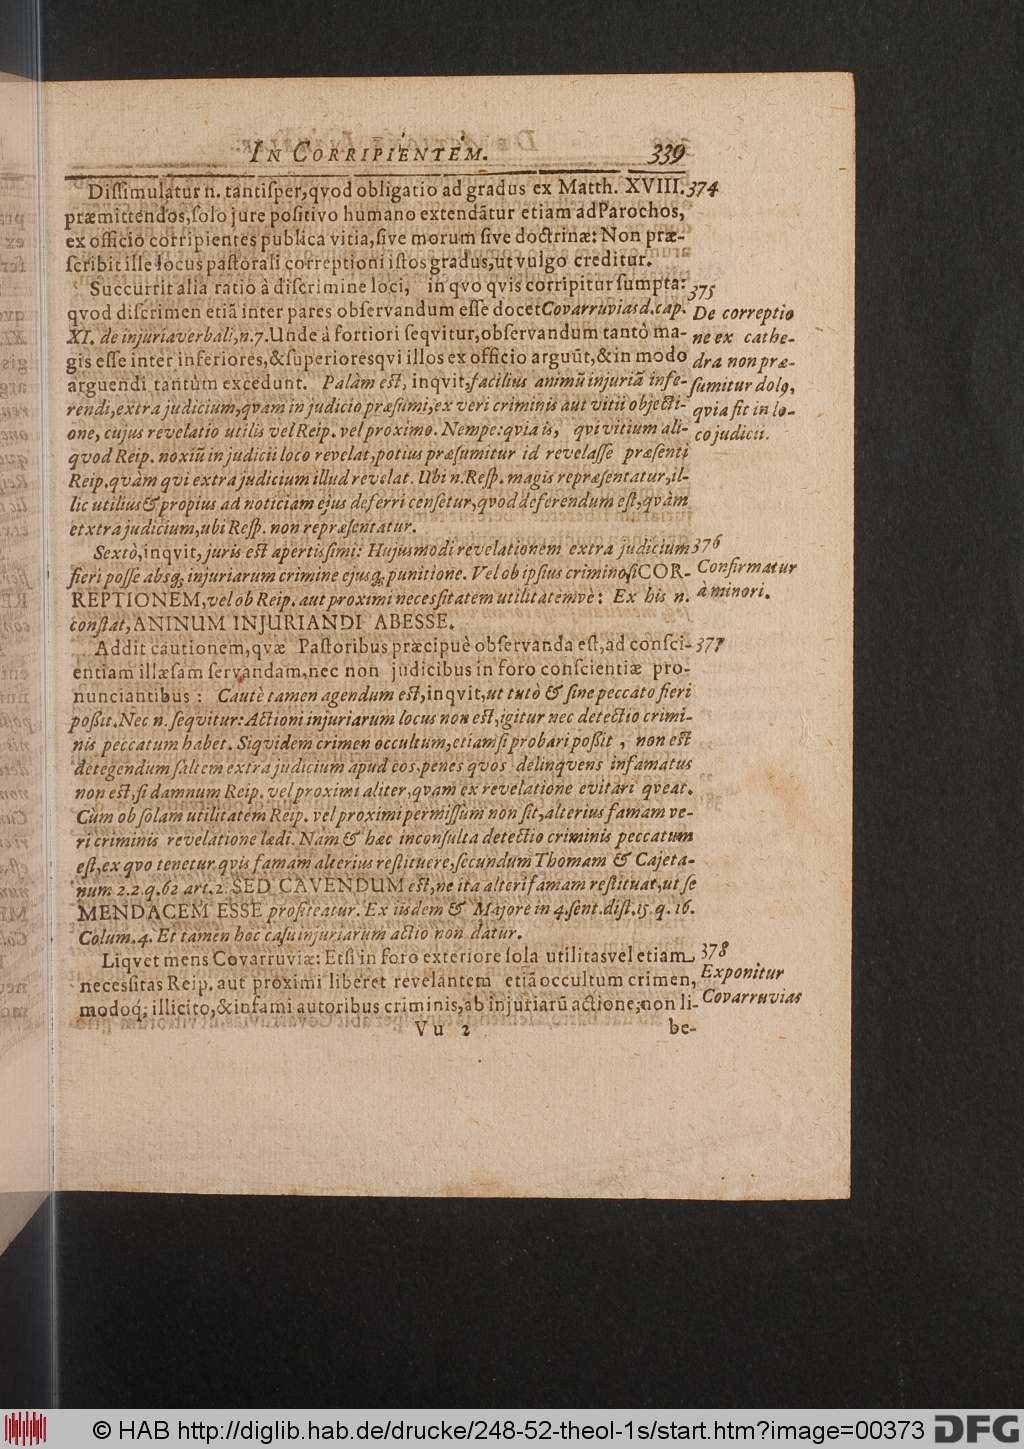 IN CORRIPIENTEM. 339
Dissimulatur n. tantisper, qvod obligatio ad gradus ex Matth. XVIII. 374
præmittendos, solo jure positivo humano extendātur etiam ad Parochos,
ex officio corripientes publica vitia, sive morum sive doctrinæ: Non præ-
scribit ille locus pastorali correptioni istos gradus, ut vulgo creditur.
Succurrit alia ratio à discrimine loci, in qvo qvis corripitur sumpta: 375
qvod discrimen etiā inter pares observandum esse docet Covarruvias d. cap.
XI. de injuria verbali, n. 7. Unde à fortiori seqvitur, observandum tantò ma-
gis esse inter inferiores, & superiores qvi illos ex officio arguūt, & in modo
arguendi tantùm excedunt. Palàm est, inqvit, facilius animū injuriā infe-
rendi, extra judicium, qvam in judicio præsumi, ex veri criminis aut vitii objecti-
one, cujus revelatio utilis vel Reip. vel proximo. Nempe: qvia is, qvi vitium ali-
qvod Reip. noxiū in judicii loco revelat, potius præsumitur id revelasse præsenti
Reip. qvàm qvi extra judicium illud revelat. Ubi n. Resp. magis repræsentatur, il-
lic utilius & propius ad noticiam ejus deferri censetur, qvod deferendum est, qvàm
etxtra judicium, ubi Resp. non repræsentatur.
De correptio
ne ex cathe-
dra non præ-
sumitur dolꝰ,
qvia fit in lo-
co judicii.
Sextò, inqvit, juris est apertissimi: Hujusmodi revelationem extra judicium 376
fieri posse absq; injuriarum crimine ejusq; punitione. Vel ob ipsius criminosi COR-
REPTIONEM, vel ob Reip. aut proximi necessitatem utilitatemvè: Ex his n.
constat, ANINUM INJURIANDI ABESSE.
Confirmatur
à minori.
Addit cautionem, qvæ Pastoribus præcipuè observanda est, ad consci- 377
entiam illæsam servandam, nec non judicibus in foro conscientiæ pro-
nunciantibus: Cautè tamen agendum est, inqvit, ut tutò & sine peccato fieri
poßit. Nec n. seqvitur: Actioni injuriarum locus non est, igitur nec detectio crimi-
nis peccatum habet. Siqvidem crimen occultum, etiamsi probari poßit, non est
detegendum saltem extra judicium apud eos, penes qvos delinqvens infamatus
non est, si damnum Reip. vel proximi aliter, qvam ex revelatione evitari qveat.
Cùm ob solam utilitatem Reip. vel proximi permissum non sit, alterius famam ve-
ri criminis revelatione lædi. Nam & hæc inconsulta detectio criminis peccatum
est, ex qvo tenetur qvis famam alterius restituere, secundum Thomam & Cajeta-
num 2. 2. q. 62 art. 2. SED CAVENDUM est, ne ita alteri famam restituat, ut se
MENDACEM ESSE profiteatur. Ex iisdem & Majore in 4. sent. dist. 15. q. 16.
Colum. 4. Et tamen hoc casu injuriarum actio non datur.
Liqvet mens Covarruviæ: Etsi in foro exteriore sola utilitas vel etiam 378
necessitas Reip. aut proximi liberet revelantem etiā occultum crimen,
modoq; illicito, & infami autoribus criminis, ab injuriarū actione; non li-
Exponitur
Covarruvias
Vu 2 be-
© HAB http://diglib.hab.de/drucke/248-52-theol-1s/start.htm?image=00373 DFG